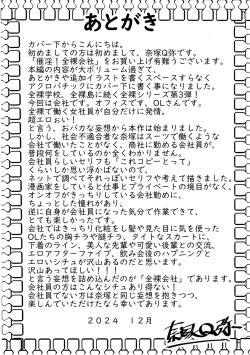 あとがき
カバー下からこんにちは。
初めましての方は初めまして、奈塚Q弥です。
「催淫!全裸会社」をお買い上げ有難うございます。
本編の内容が大ボリューム過ぎて
あとがきや追加イラストを書くスペースすらなく
アクロバチックにカバー下に書く事になりました。
全裸学校、全裸島に続く全裸シリーズ第3弾!
今回は会社です。オフィスです。OLさんです。
全裸で働く女社員が自分だけに発情。
超エロおい!
と言う、おバカな妄想から本作は始まりました。
しかし、社会不適合者な奈塚はスーツで働くような
会社で働いたことがなく、商社に勤める会社員が、
普段何をしているのか全くわかりません。
会社員らしいセリフも「これコピーとって」
くらいしか思い浮かばないので、
ネットで調べてそれっぽいセリフや考えて描きました。
漫画家をしていると仕事とプライベートの境目がなく、
オンオフがきっちりしている会社勤めに、
ちょっとした憧れがあり、
逆に自分が会社員になった気分で作業できて、
とても楽しかったです。
会社ではきっちり化粧をし髪や見た目に気を使った
OLたちの胸チラや腿チラ、タイトなスカートに、
下着のライン、美人な先輩や可愛い後輩との交流、
エロアフターファイブ、飲み会後のハプニングと
エロいシチュが沢山あるのだと思います。
沢山あってほしい!!!!
と言う妄想を詰め込んだのが「全裸会社」であります。
会社員の方はこんなシチュあり得ない!
会社員でない方は奈塚と同じ妄想を抱きつつ、
楽しんでいただけたなら幸いであります。
2024 12月
奈塚Q弥